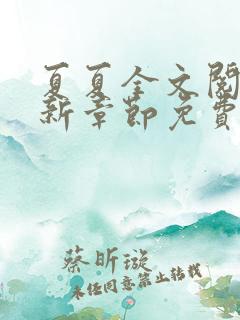 夏夏全文阅
新章节免费
蔡昕璇
未经同意禁止转载